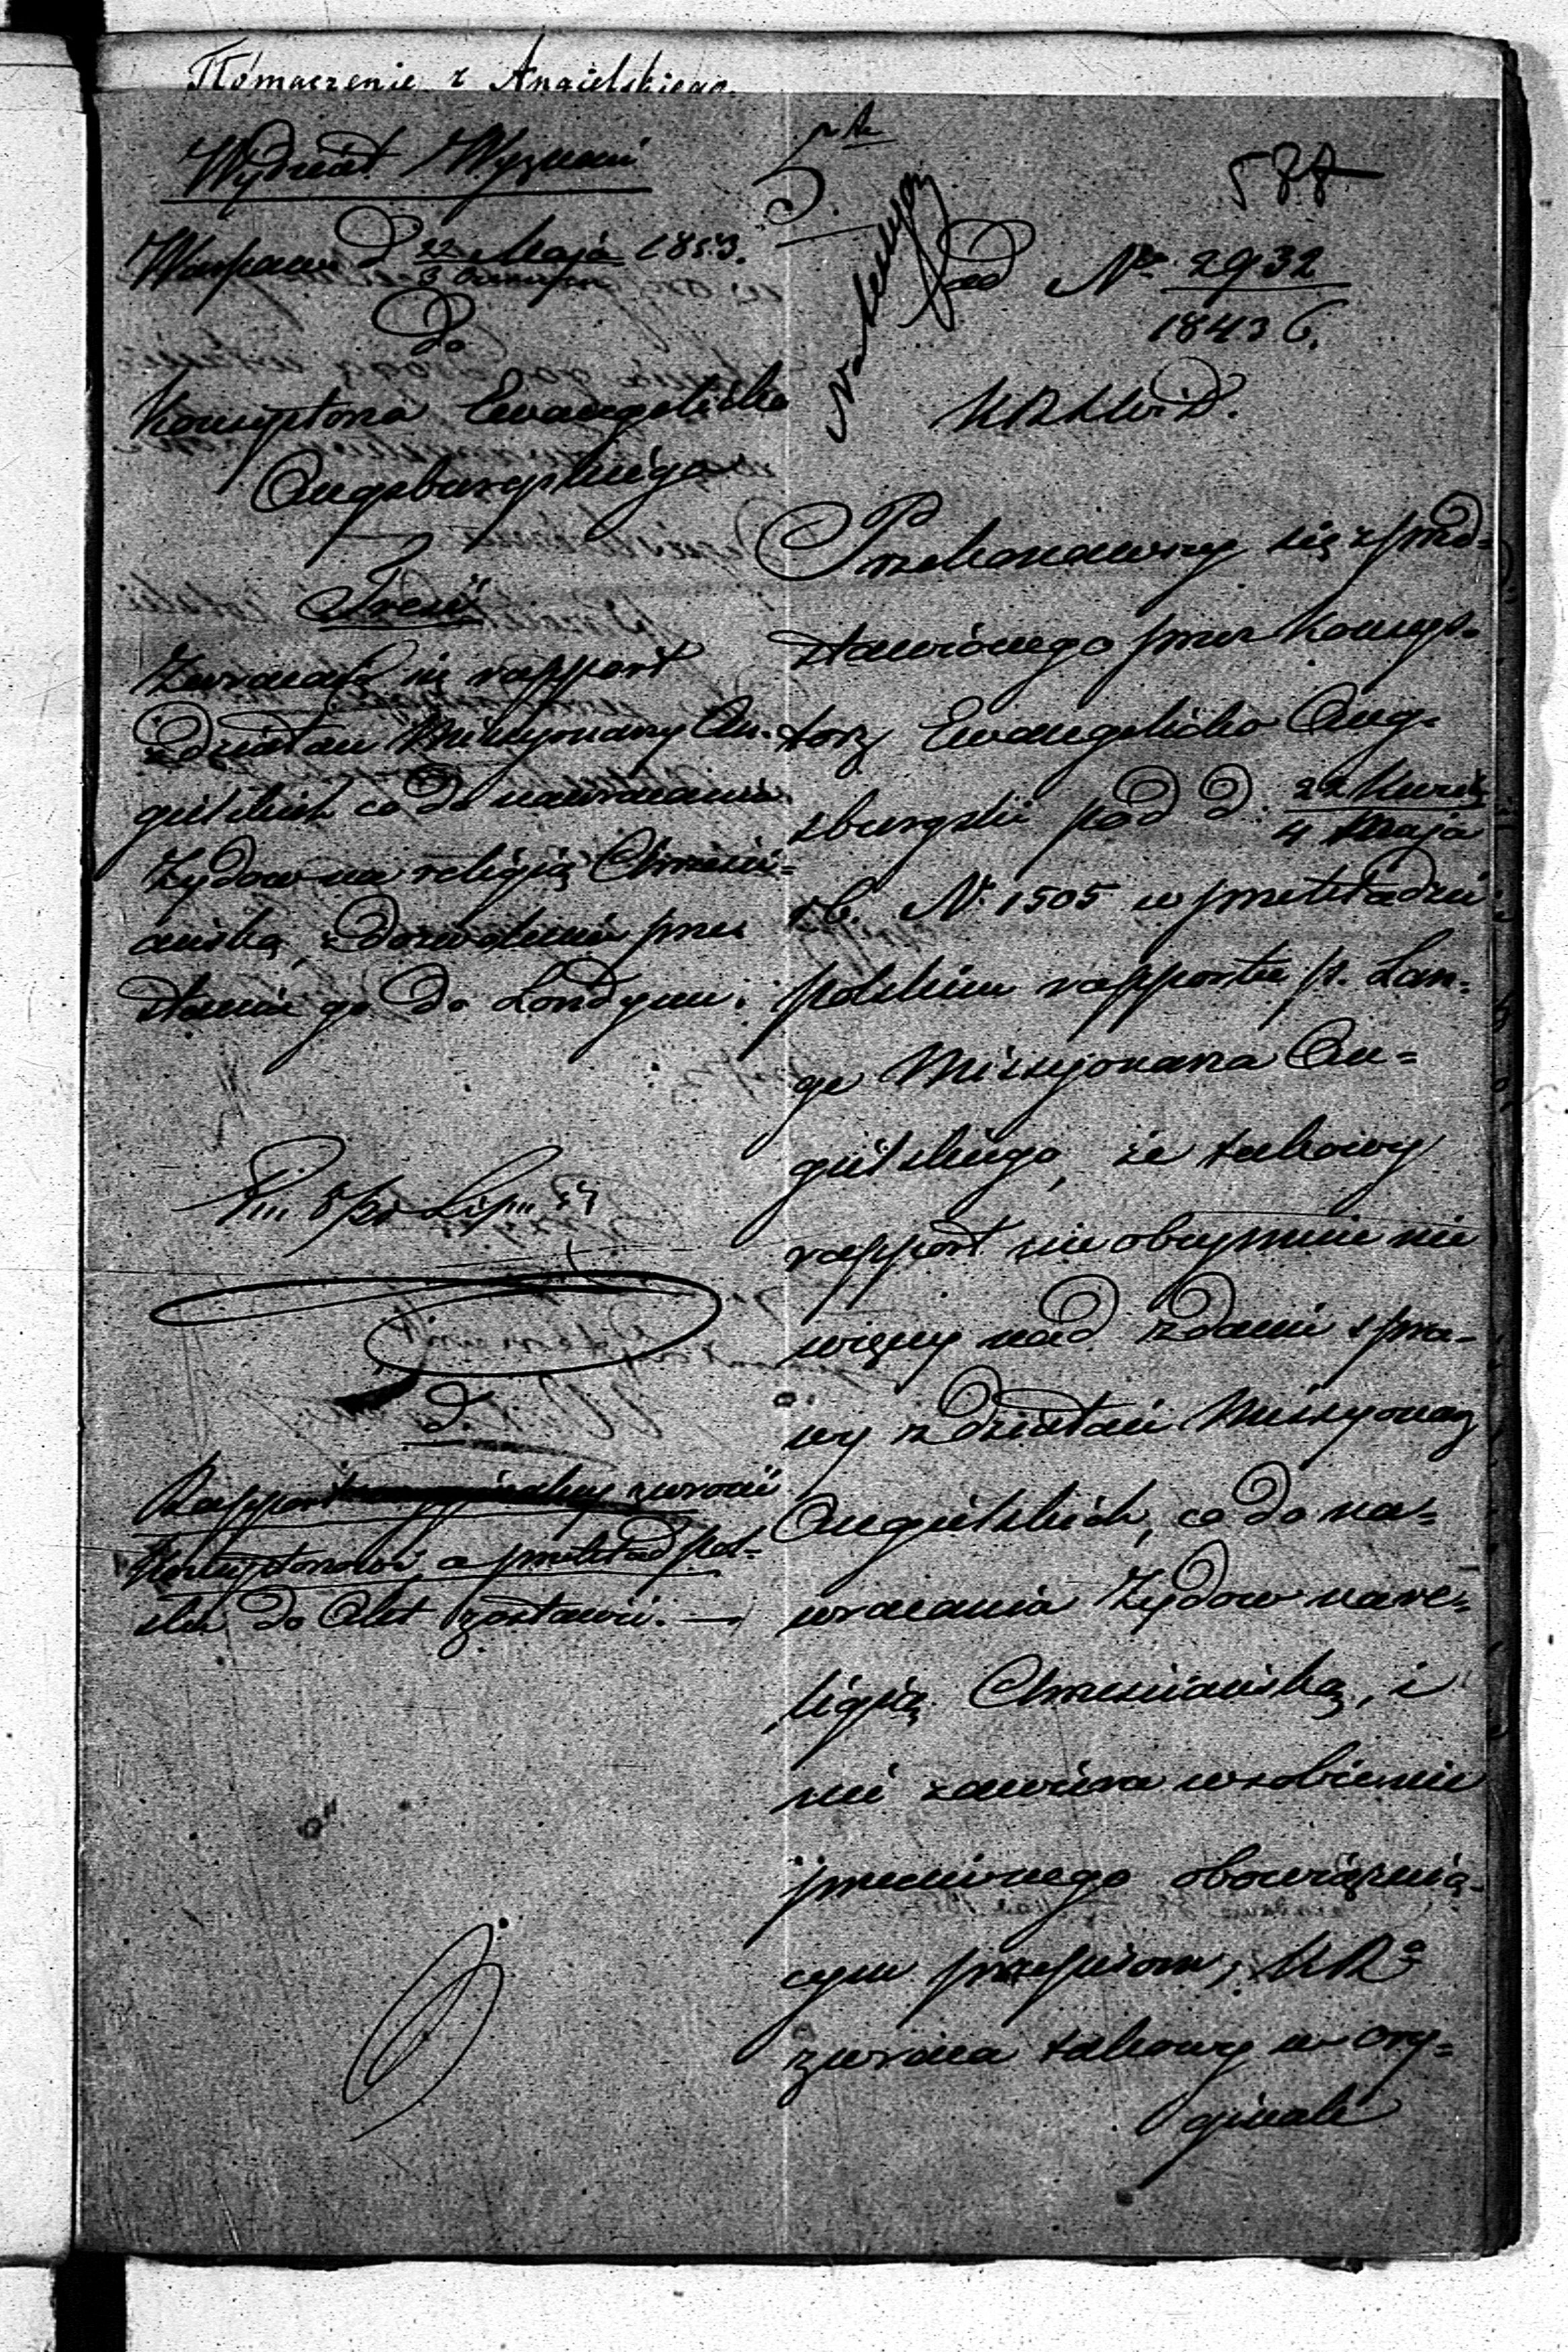 Tłómaczenie z Angielskiego.
Wydział Wyznań
Warszawa d 22 Maja 1853.
3 Czerwca
do
Konsystorza Ewangelicko
Augsburgskiego
Treść
Zwracając się rapport
z działań Missyonarzy An-
gielskich co do nawracania
Żydow na religią Chrześci-
ańską, z dozwoleniem prze
słania go do Londynu.
D.
Rapport zwrocić
Konsystorzowi, a przekład pol-
ski do Akt zostawić. —
5.
588
ad No 2932
1843 6.
KRSWiD.
Przekonawszy się z przed-
stawionego przez Konsys-
torz Ewangelicko Aug-
sburgski pod d. 22 Kwiet
4 Maja
r. b. N. 1505 w przekładzie
polskim rapportu p. Lan-
ge Missyonarza An-
gielskiego, że takowy
rapport nie obejmuje nic
więcey nad zdanie spra-
wy z działań Missyonarzy
Angielskich, co do na-
wracania Żydow na re-
ligią Chrześciańską, i
nie zawiera w sobie nic
przeciwnego obowiązują-
cym przepisom, KR
zwraca takowy w ory-
ginale